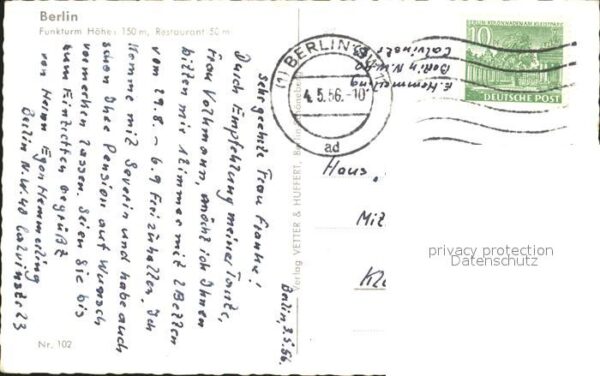 Berlin
Funkturm Höhe: 150 m, Restaurant 50 m
Berlin, 3.5.56.
Sehr geehrte Frau Franke!
Durch Empfehlung meiner Tante,
Frau Volkmann, möcht ich Ihnen
bitten mir 1 Zimmer mit 2 Betten
vom 19.8. - 6.9 frei zuhalten. Ich
komme mit Severin und habe auch
schon Ihre Pension auf Wunsch
vermerken lassen. Seien Sie bis
zum Eintreffen begrüßt
von Herrn Egon Hemmerling
Berlin N.W.40 Calvinstr 23
Nr. 102
Verlag VETTER & HUFFERT, Berlin
E. Hemmerling
Berlin N.W.40
Calvinstr
(1) BERLIN
4.5.56.-10
ad
BERLIN
KLEISTPARK
10
DEUTSCHE POST
Haus
Mit
privacy protection
Datenschutz